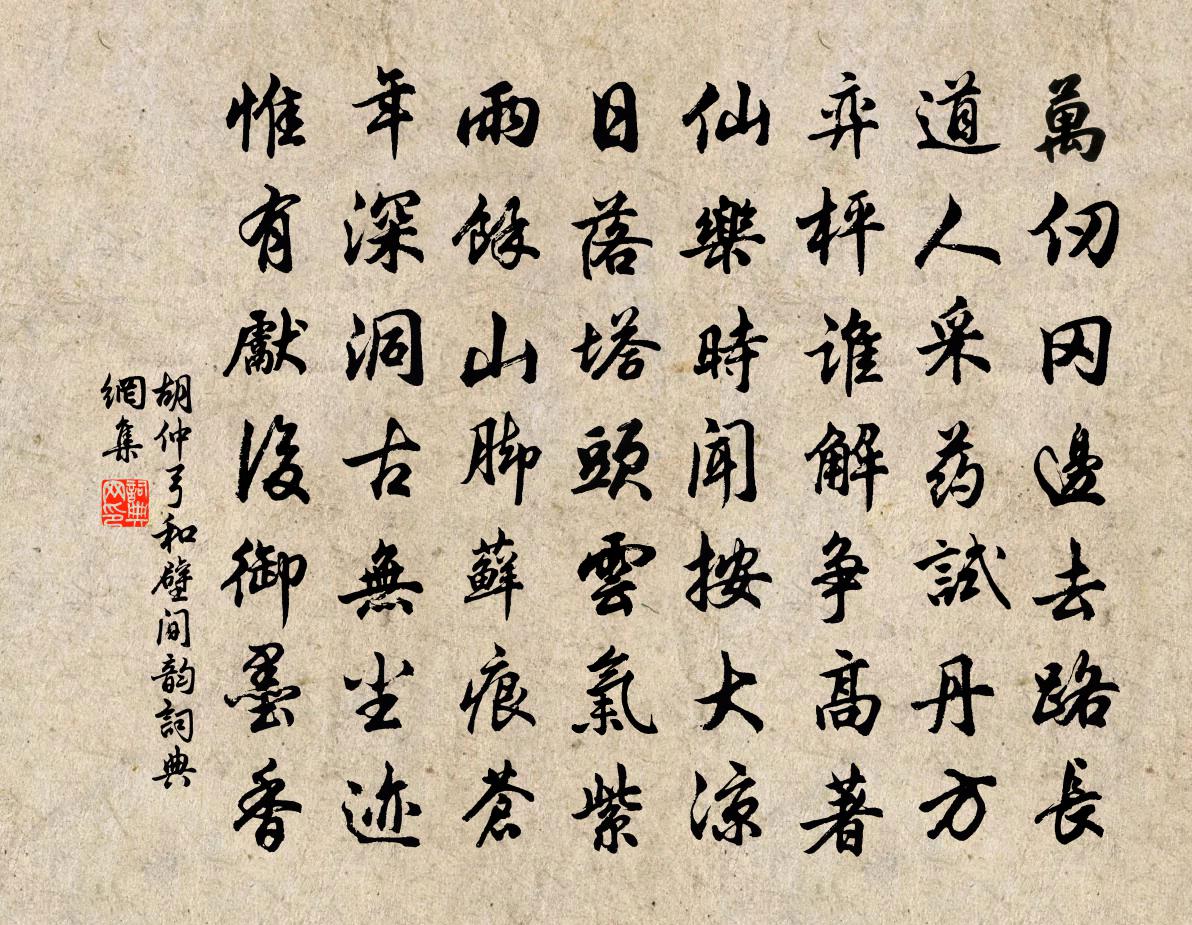 萬仞冈邊去路長
道人采药試丹方
弈枰誰解争高著
仙樂時聞按大凉
日落塔頭雲氣紫
雨餘山脚蘚痕蒼
年深洞古無尘迹
惟有獻後御墨香
胡仲弓和壁间韵詞典
網集
詞典
网印